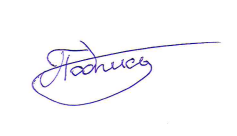 Подпись